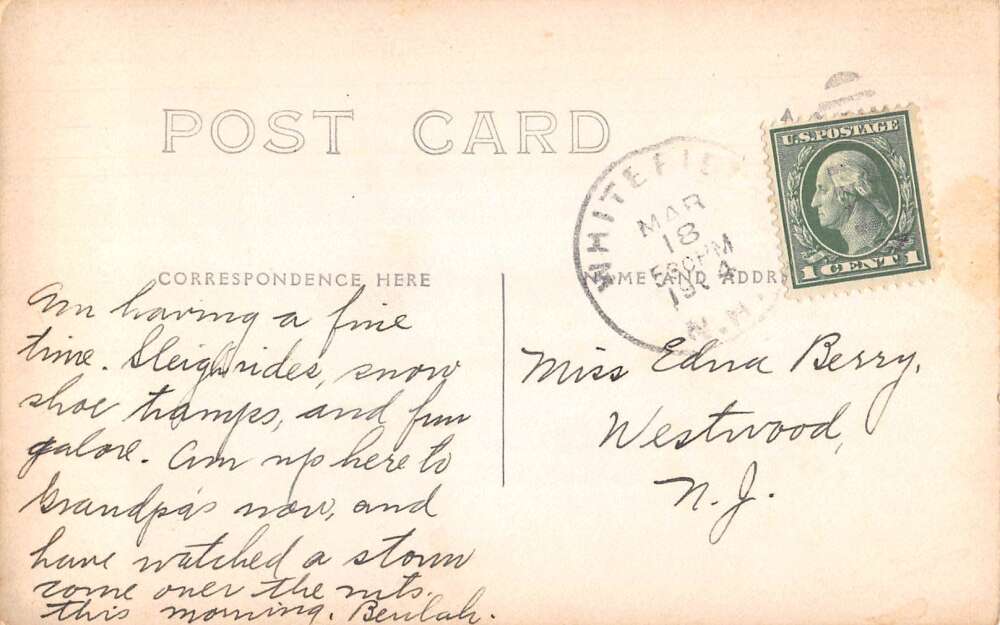 POST CARD
WHITEFIE
MAR
18
530PM
N.H.
U.S.POSTAGE
1 CENT 1
CORRESPONDENCE HERE
NAME AND ADDR
Am having a fine
time. Sleigh rides, snow
shoe tramps, and fun
galore. Am up here to
Grandpa's now, and
have watched a storm
come over the mts.
this morning. Beulah.
Miss Edna Berry,
Westwood,
N.J.